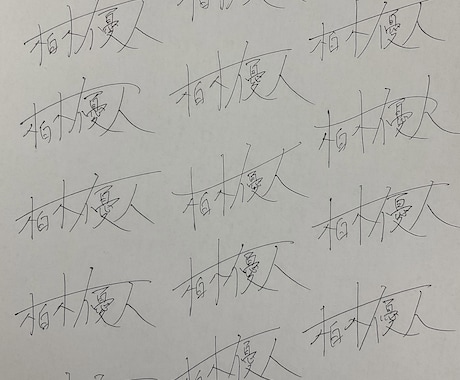 柏木優人
柏木優人
柏木優人
柏木優人
柏木優人
柏木優人
柏木優人
柏木優人
柏木優人
柏木優人
柏木優人
柏木優人